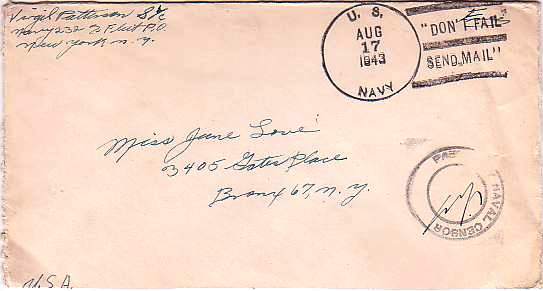 Virgil Patterson S2/c
Navy 232 % Fleet P.O.
New York N.Y.
U. S.
AUG
17
1943
NAVY
"DON'T FAIL
SEND MAIL"
Miss Jane Love
3405 Gates Place
Bronx 67, N.Y.
NAVAL CENSOR
U.S.A.